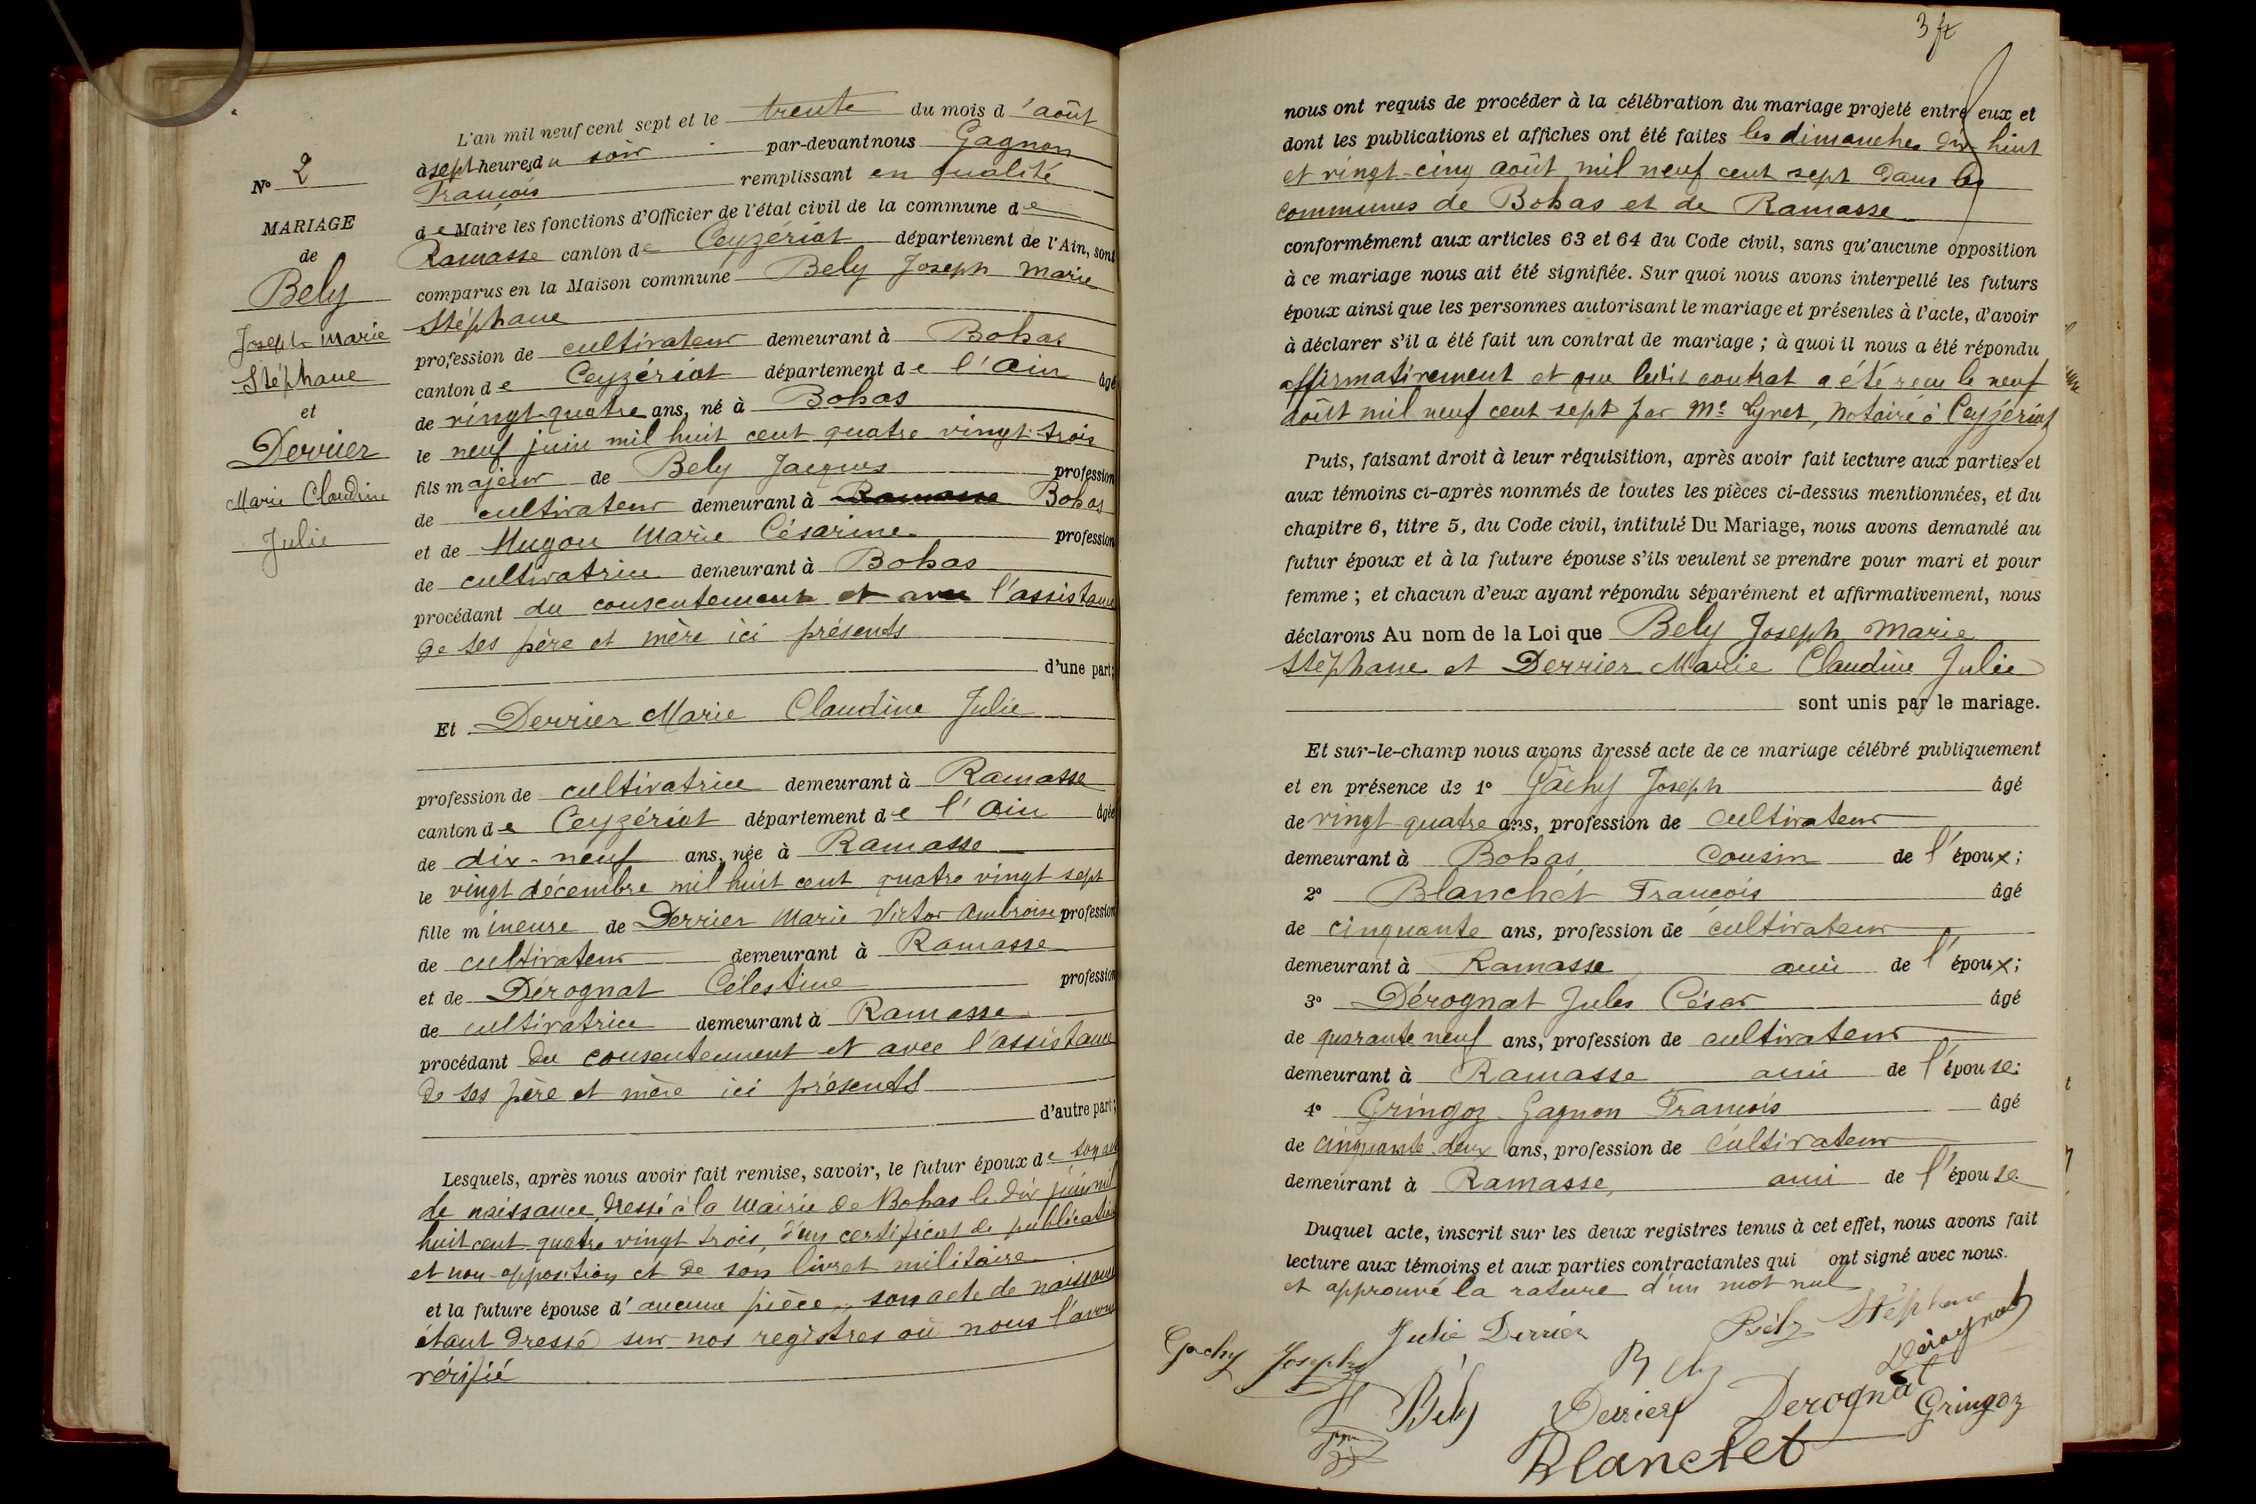 N° 2
MARIAGE
de
Bely
Joseph Marie
Stéphane
et
Derrier
Marie Claudine
Julie
L'an mil neuf cent sept et le trente du mois d'août
à sept heures du soir par-devant nous Gagnon
François remplissant en qualité
de Maire les fonctions d'Officier de l'état civil de la commune de
Ramasse canton de Ceyzériat département de l'Ain, sont
comparus en la Maison commune Bely Joseph Marie
Stéphane
profession de cultivateur demeurant à Bohas
canton de Ceyzériat département de l'Ain âgé
de vingt-quatre ans, né à Bohas
le neuf juin mil huit cent quatre vingt-trois
fils majeur de Bely Jacques profession
de cultivateur demeurant à Ramasse Bohas
et de Hugon Marie Césarine profession
de cultivatrice demeurant à Bohas
procédant du consentement et avec l'assistance
de ses père et mère ici présents
d'une part;
Et Derrier Marie Claudine Julie
profession de cultivatrice demeurant à Ramasse
canton de Ceyzériat département de l'Ain âgée
de dix-neuf ans, née à Ramasse
le vingt décembre mil huit cent quatre vingt sept
fille mineure de Derrier Marie Victor Ambroise profession
de cultivateur demeurant à Ramasse
et de Dérognat Célestine profession
de cultivatrice demeurant à Ramasse
procédant du consentement et avec l'assistance
de ses père et mère ici présents
d'autre part;
Lesquels, après nous avoir fait remise, savoir, le futur époux de son acte
de naissance dressé à la Mairie de Bohas le dix juin mil
huit cent quatre vingt trois, d'un certificat de publication
et non-opposition et de son livret militaire
et la future épouse d'aucune pièce, son acte de naissance
étant dressé sur nos registres où nous l'avons
vérifié
nous ont requis de procéder à la célébration du mariage projeté entre eux et
dont les publications et affiches ont été faites les dimanches dix huit
et vingt-cinq août mil neuf cent sept dans les
communes de Bohas et de Ramasse
conformément aux articles 63 et 64 du Code civil, sans qu'aucune opposition
à ce mariage nous ait été signifiée. Sur quoi nous avons interpellé les futurs
époux ainsi que les personnes autorisant le mariage et présentes à l'acte, d'avoir
à déclarer s'il a été fait un contrat de mariage; à quoi il nous a été répondu
affirmativement et que ledit contrat a été reçu le neuf
août mil neuf cent sept par Me notaire à Ceyzériat
Puis, faisant droit à leur réquisition, après avoir fait lecture aux parties et
aux témoins ci-après nommés de toutes les pièces ci-dessus mentionnées, et du
chapitre 6, titre 5, du Code civil, intitulé Du Mariage, nous avons demandé au
futur époux et à la future épouse s'ils veulent se prendre pour mari et pour
femme; et chacun d'eux ayant répondu séparément et affirmativement, nous
déclarons Au nom de la Loi que Bely Joseph Marie
Stéphane et Derrier Marie Claudine Julie
sont unis par le mariage.
Et sur-le-champ nous avons dressé acte de ce mariage célébré publiquement
et en présence de 1° Gâchy Joseph âgé
de vingt-quatre ans, profession de cultivateur
demeurant à Bohas cousin de l'époux;
2° Blanchet François âgé
de cinquante ans, profession de cultivateur
demeurant à Ramasse ami de l'époux;
3° Dérognat Jules César âgé
de quarante neuf ans, profession de cultivateur
demeurant à Ramasse ami de l'épouse;
4° Gringoz-Gagnon François âgé
de cinquante deux ans, profession de cultivateur
demeurant à Ramasse, ami de l'épouse.
Duquel acte, inscrit sur les deux registres tenus à cet effet, nous avons fait
lecture aux témoins et aux parties contractantes qui ont signé avec nous.
et approuvé la rature d'un mot nul
Julie Derrier Bely Stéphane
Gachy Joseph Bely Dérognat
Bely Derrier Derognat Gringoz
Blanchet